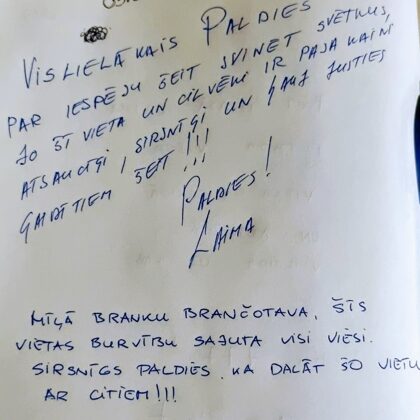 VISLIELĀKAIS PALDIES
PAR IESPĒJU ŠEIT SVINĒT SVĒTKUS,
JO ŠĪ VIETA UN CILVĒKI IR PASAKAINI
ATSAUCĪGI, SIRSNĪGI UN ĻAUJ JUSTIES
GAIDĪTIEM ŠEIT!!!
PALDIES!
LAIMA
MĪĻĀ BRANKU BRANČOTAVA, ŠĪS
VIETAS BURVĪBU SAJUTA VISI VIESI.
SIRSNĪGS PALDIES, KA DALĀT ŠO VIETU
AR CITIEM!!!